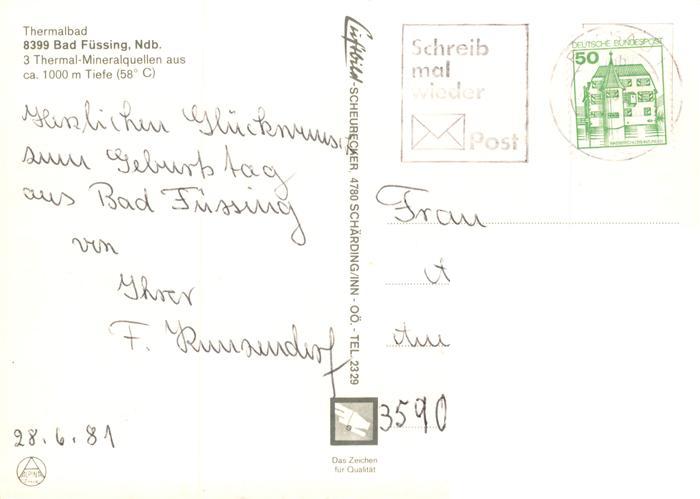 Thermalbad
8399 Bad Füssing, Ndb.
3 Thermal-Mineralquellen aus
ca. 1000 m Tiefe (58° C)
Herzlichen Glückwunsch
zum Geburtstag
aus Bad Füssing
von
Ihrer
F. Kunzendorf
28.6.81
ALPINA
Luftbild-SCHEURECKER, 4780 SCHÄRDING/INN - OÖ. - TEL. 2329
Das Zeichen
für Qualität
Schreib
mal
wieder
Post
DEUTSCHE BUNDESPOST
50
Frau
3590